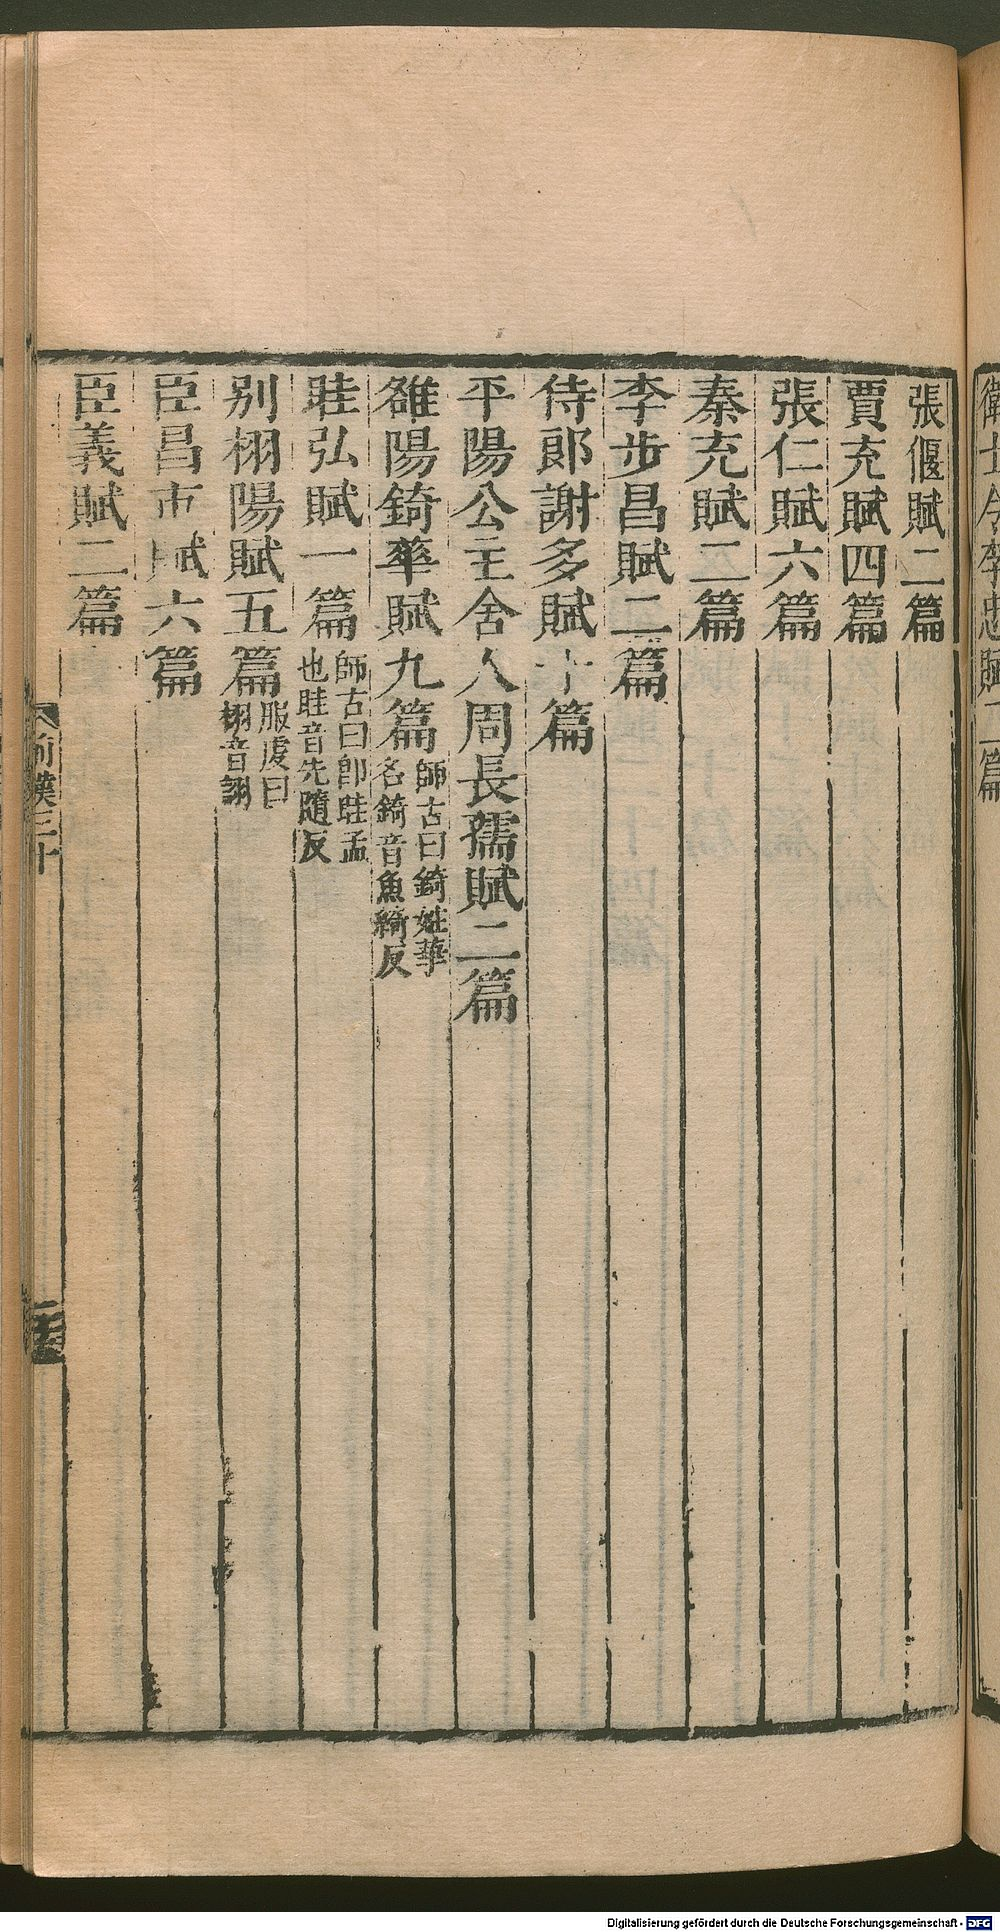 衛士令李忠賦二篇
張偃賦二篇
賈充賦四篇
張仁賦六篇
秦充賦二篇
李步昌賦二篇
侍郎謝多賦十篇
平陽公主舍人周長孺賦二篇
雒陽錡華賦九篇師古曰錡姓華名錡音魚綺反
眭弘賦一篇師古曰即眭孟也眭音先隨反
別栩陽賦五篇服虔曰栩音詡
臣昌市賦六篇
臣義賦二篇
前漢三十
Digitalisierung gefördert durch die Deutsche Forschungsgemeinschaft - DFG